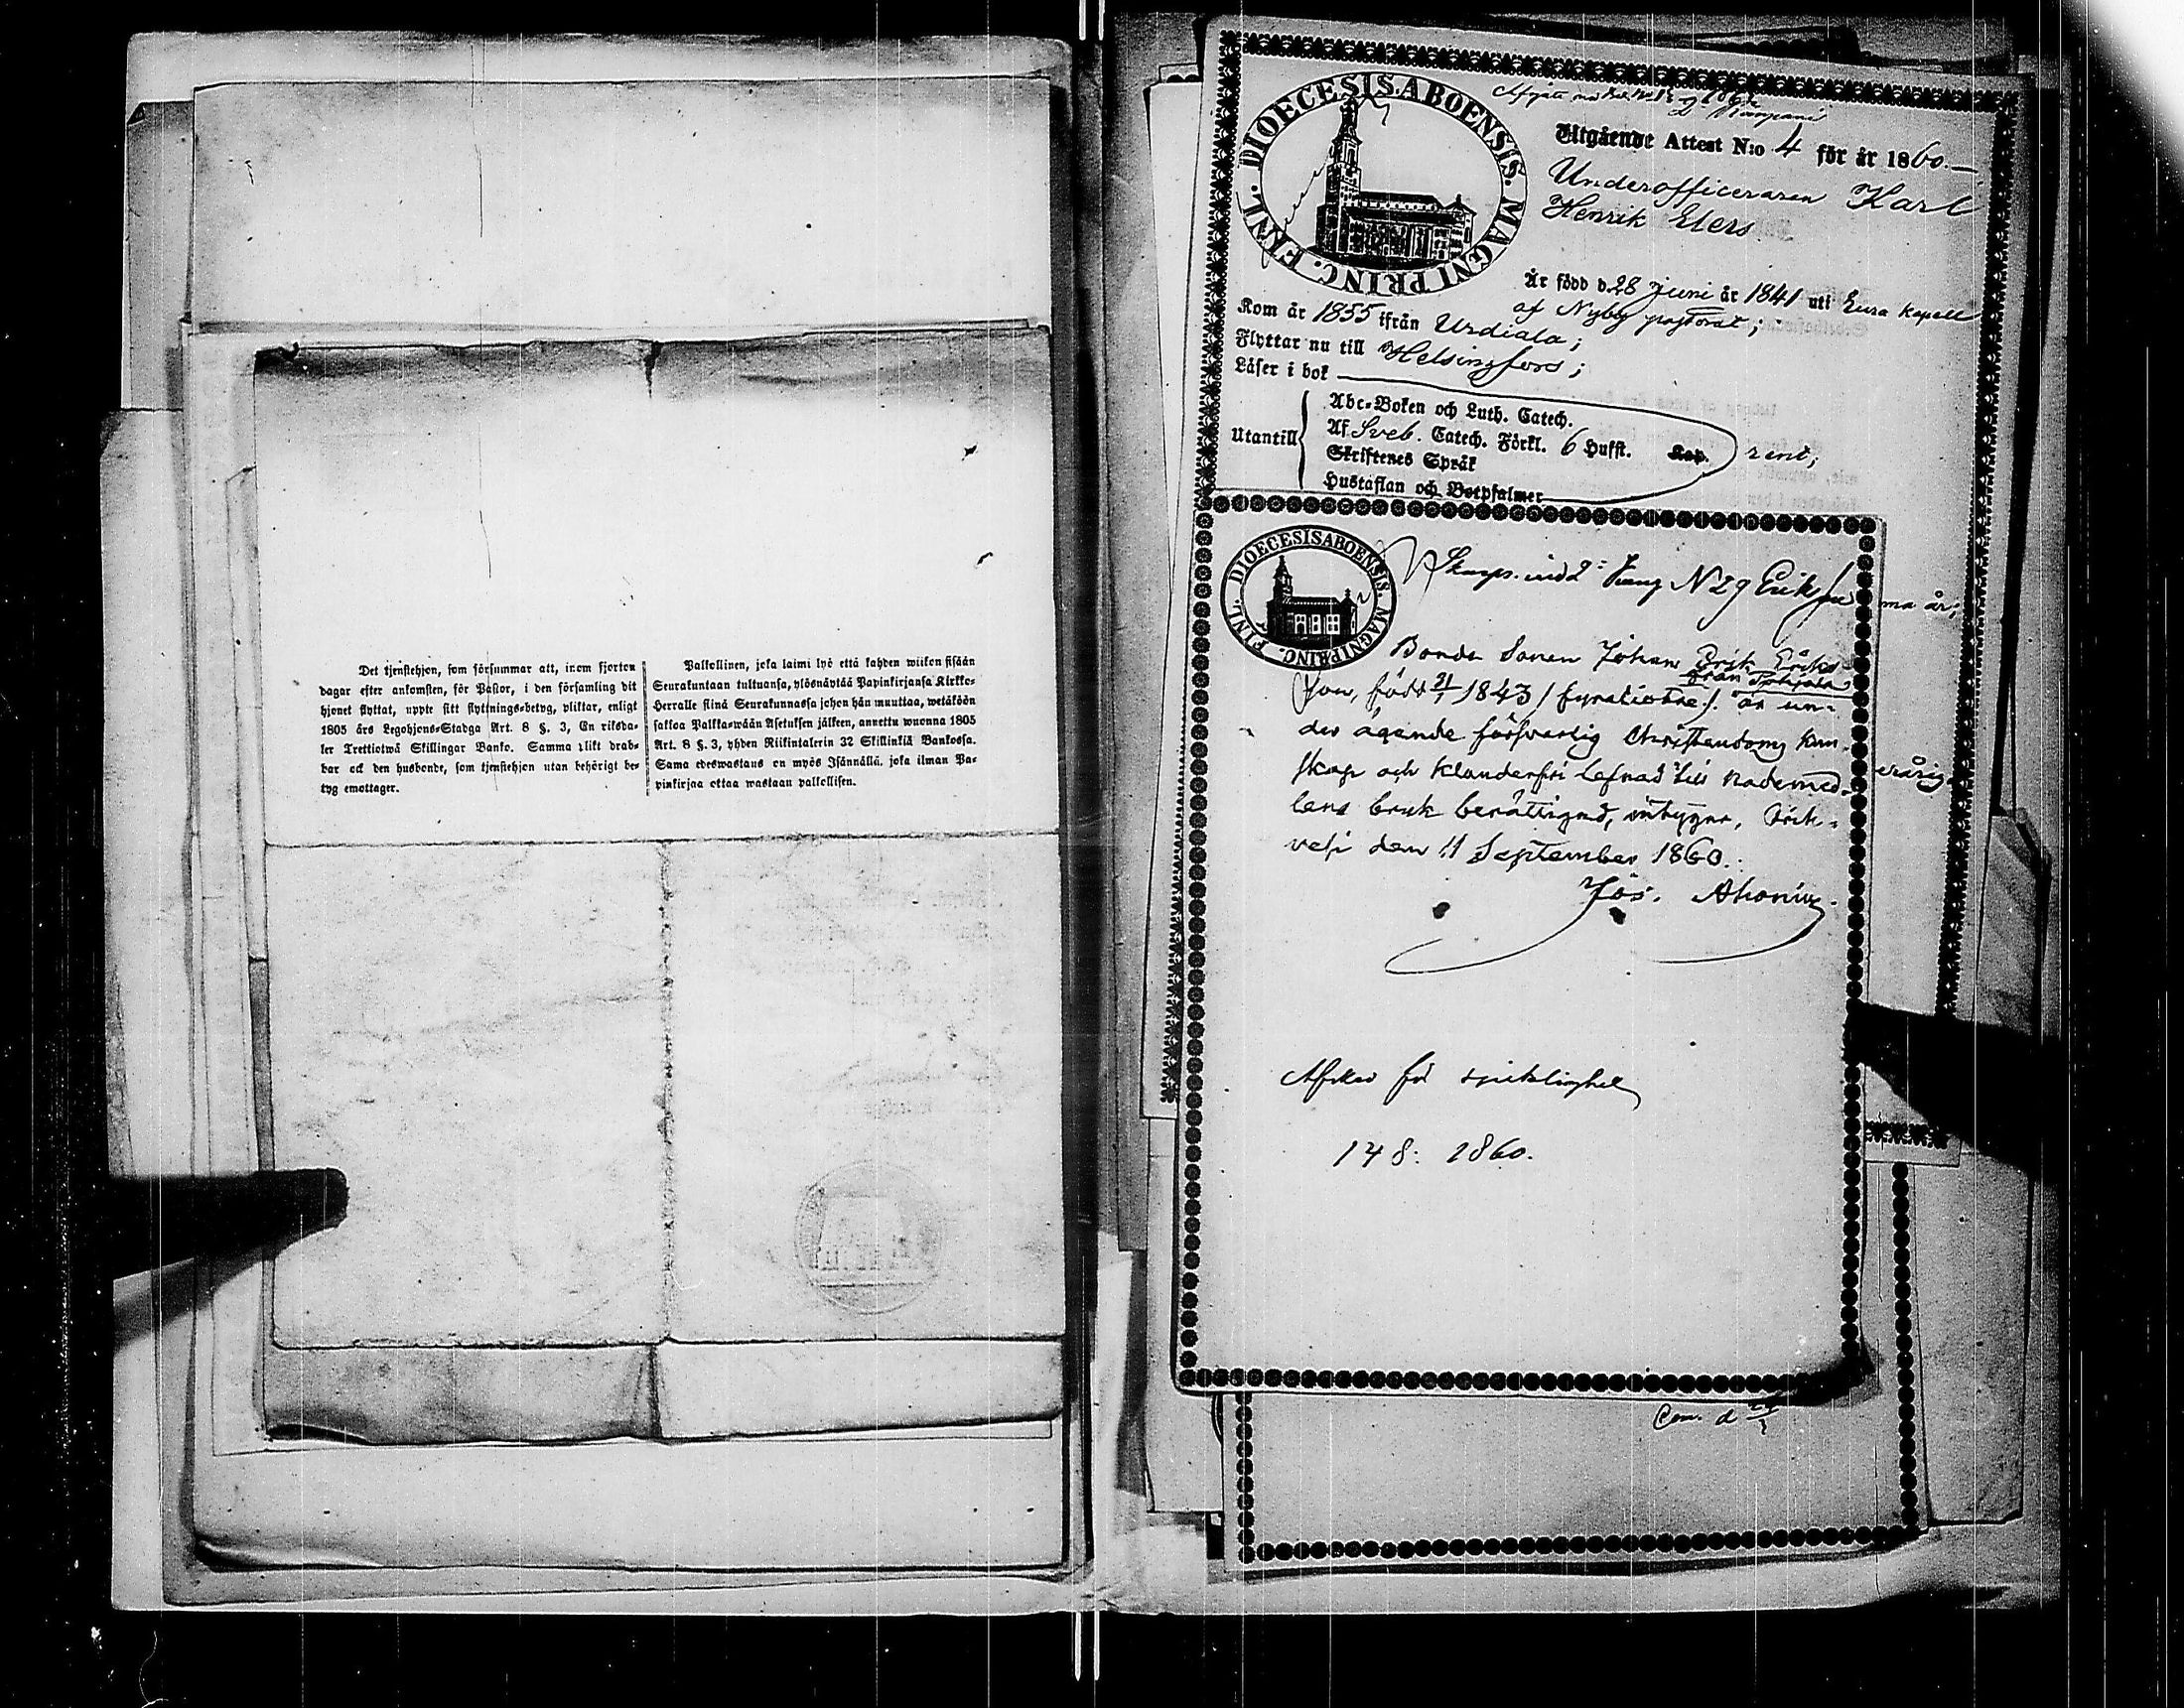 Det tjenstehjon, som försummar att, inom fjorton
dagar efter ankomsten, för Pastor, i den församling dit
hjonet flyttat, uppte sitt flyttnings-betyg, pliktar, enligt
1805 års Legohjons-Stadga Art. 8 §. 3, En riksda-
ler Trettiotwå Skillingar Banko. Samma plikt drab-
bar ock den husbonde, som tjenstehjon utan behörigt be-
tyg emottager.
Palkollinen, joka laimi lyö että kahden wiikon sisään
Seurakuntaan tultuansa, ylösnäyttää Papinkirjansa Kirkko-
Herralle siinä Seurakunnassa johon hän muuttaa, wetäköön
sakkoa Palkka-wään Asetuksen jälkeen, annettu wuonna 1805
Art. 8 §. 3, yhden Riikintalerin 32 Skillinkiä Bankossa.
Sama edeswastaus on myös Isännällä, joka ilman Pa-
pinkirjaa ottaa wastaan palkollisen.
DIOECESIS ABOENSIS. MAGNI PRINC. FINL.
Kompani
Utgående Attest N:o 4 för år 1860.
Underofficeraren Karl
Henrik Elers
Är född d. 28 Juni år 1841 uti Eura Kapell
af Nyby pastorat;
Kom år 1855 ifrån Urdiala;
Flyttar nu till Helsingfors;
Läser i bok
Utantill
Abc-Boken och Luth. Catech.
Af Sveb. Catech. Förkl. 6 Hufst. Kap.
Skriftenes Språk
Hustaflan och Botpsalmer
rent;
DIOECESIS ABOENSIS. MAGNI PRINC. FINL.
Skarps. vid 2: Komp N 29 Erik
ma år;
Bonde Sonen Johan Erik Eriks-
från
son, född 21/1 1843 /fyratiotre/. är un-
der ägande försvarlig Christendoms kun-
skap och klanderfri lefnad till nademed-
lens bruk berättigad, intygar, Örik-
vesi den 11 September 1860.
Jos. Ahonius.
Afsked för sjuklighet
148: 1860.
Com. d